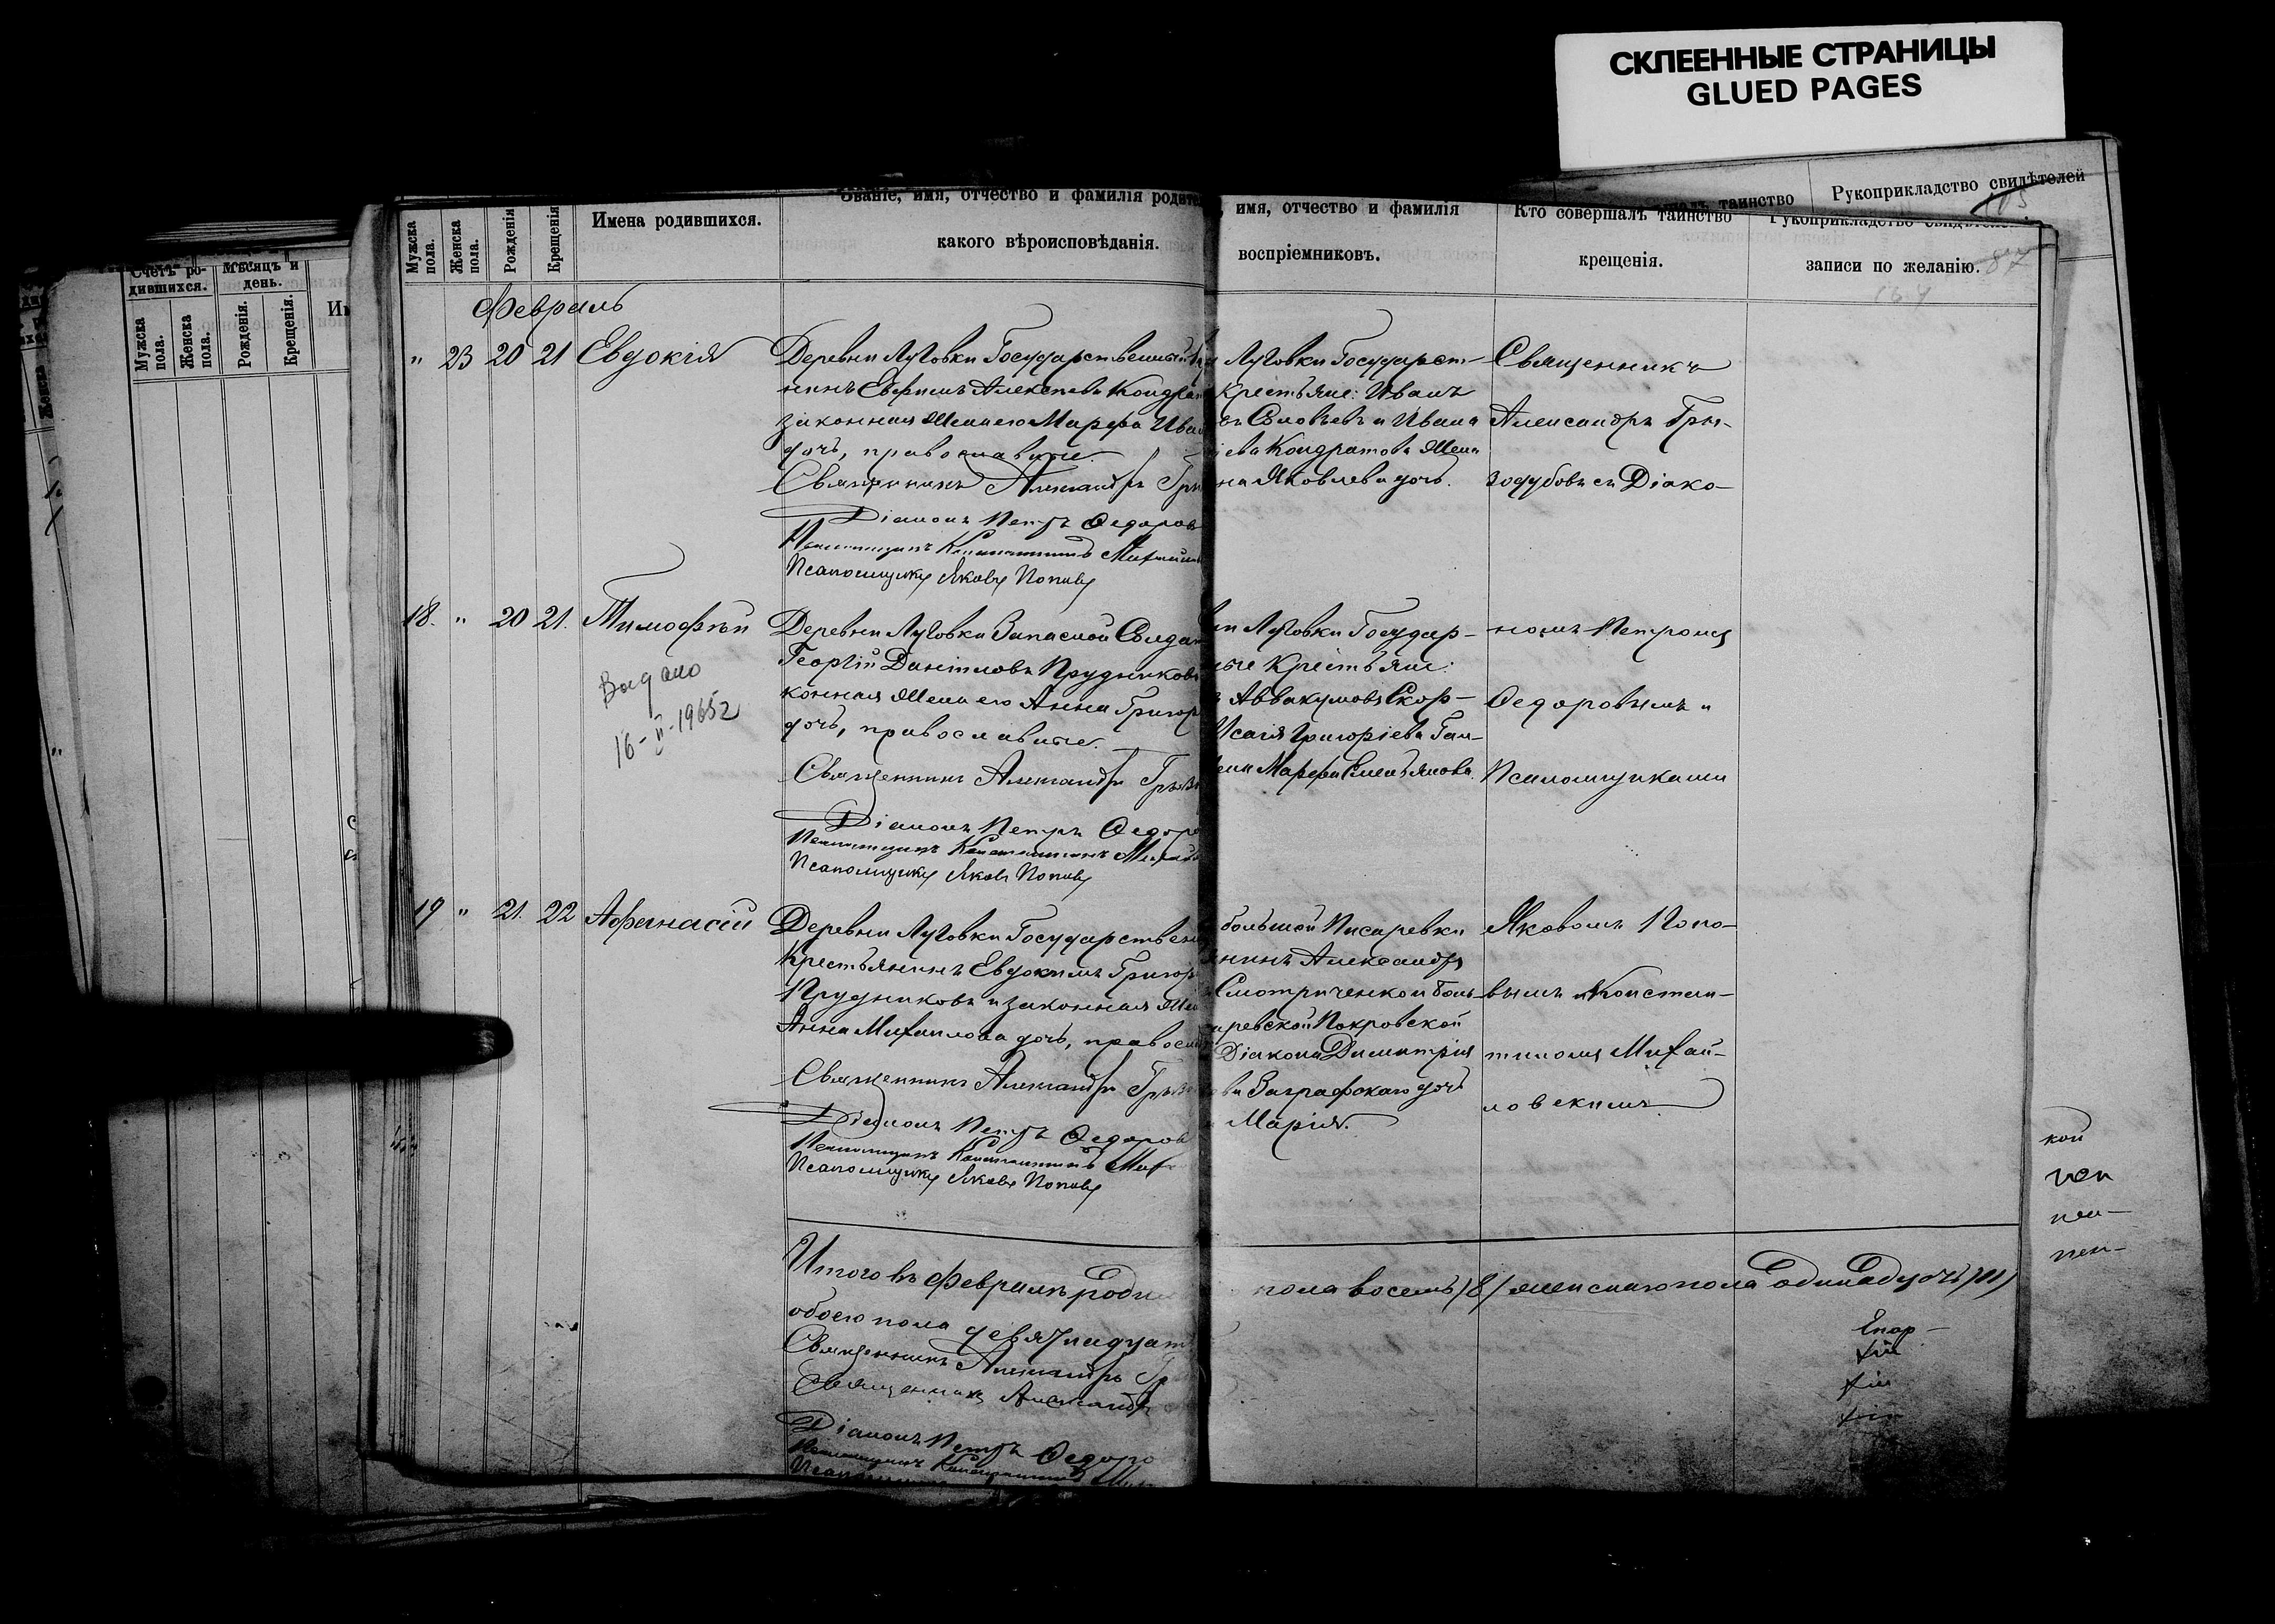 СКЛЕЕННЫЕ СТРАНИЦЫ
GLUED PAGES
таинство
Рукоприкладство свидѣтелей
105
Счетъ ро-
дившихся.
Мѣсяцъ и
день.
Мужска
пола.
Женска
пола.
Рожденія.
Крещенія.
Мужска
пола.
Женска
пола.
Рожденія
Крещенія
Имена родившихся.
Званіе, имя, отчество и фамилія родите
какого вѣроисповѣданія.
, имя, отчество и фамилія
воспріемниковъ.
Кто совершалъ таинство
крещенія.
Рукоприкладство свидѣтелей
записи по желанію.
87
Февраль
" 23 20 21 Евдокія
Деревни Луговки Государственный
нинъ Евфимъ Алексѣевъ Кондра
законная жена его Марфа Ива
дочь, православные.
Священникъ Александръ Гры
Діаконъ Петръ Ѳедоров
Псаломщикъ Константинъ Михайл
Псаломщикъ Яковъ Поповъ
Луговки Государст-
Крестьяне: Иванъ
въ Соловьевъ и Ивана
іева Кондратова жена
на Яковлева дочь.
Священникъ
Александръ Гры-
зодубовъ съ Діако-
18. " 20 21. Тимофѣй
Выдано
16-II-1965г
Деревни Луговки Запасной Солда
Георгій Даніиловъ Прудников
конная жена его Анна Григор
дочь, православные.
Священникъ Александръ Грыз
Діаконъ Петръ Ѳедоро
Псаломщикъ Константинъ Михай
Псаломщикъ Яковъ Поповъ
ни Луговки Государ-
ные Крестьяне:
Аввакумовъ Скор-
Исаія Григоріева Ган-
жена Марфа Емельянова.
номъ Петромъ
Ѳедоровымъ и
Псаломщиками
19 " 21. 22 Афанасій
Деревни Луговки Государствен
Крестьянинъ Евдокимъ Григор
Прудниковъ и законная же
Анна Михаилова дочь, правосл
Священникъ Александръ Грыз
Діаконъ Петръ Ѳедоров
Псаломщикъ Константинъ Мих
Псаломщикъ Яковъ Поповъ
большой Писаревки
янинъ Александръ
Смотриченко и боль-
аревской Покровской
Діакона Димитрія
ва Заграфскаго дочь
Марія.
Яковомъ Попо-
вымъ и Констан-
тиномъ Михай-
ловскимъ.
Итого въ Февралѣ роди
пола восемь /8/ женскаго пола одинадцать /11/
обоего пола девятнадцат
Священникъ Александръ Гр
Священникъ Александръ
Діаконъ Петръ Ѳедоро
Псаломщикъ Константинъ Мих
Епар-
кой